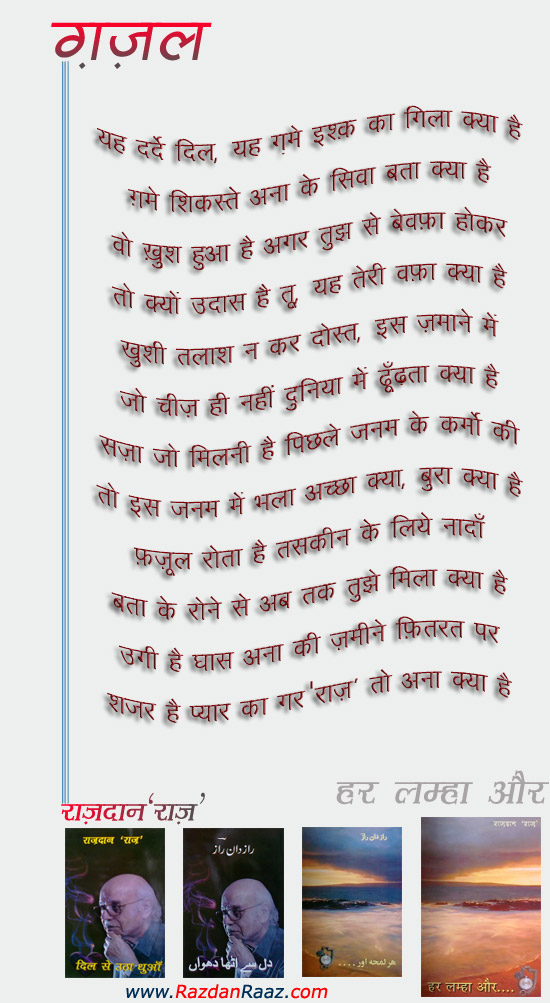 ग़ज़ल
यह दर्दे दिल, यह ग़मे इश्क़ का गिला क्या है
ग़मे शिकस्ते अना के सिवा बता क्या है
वो ख़ुश हुआ है अगर तुझ से बेवफ़ा होकर
तो क्यों उदास है तू, यह तेरी वफ़ा क्या है
खुशी तलाश न कर दोस्त, इस ज़माने में
जो चीज़ ही नहीं दुनिया में ढूँढ़ता क्या है
सज़ा जो मिलनी है पिछले जनम के कर्मो की
तो इस जनम में भला अच्छा क्या, बुरा क्या है
फ़ज़ूल रोता है तसकीन के लिये नादाँ
बता के रोने से अब तक तुझे मिला क्या है
उगी है घास अना की ज़मीने फ़ितरत पर
शजर है प्यार का गर 'राज़' तो अना क्या है
हर लम्हा और
राज़दान 'राज़'
राज़दान 'राज़'
دل سے اٹھا دھواں
رازدان راز
दिल से उठा धुआँ
رازدان راز
ھر لمحہ اور....
राज़दान 'राज़'
हर लम्हा और....
www.RazdanRaaz.com